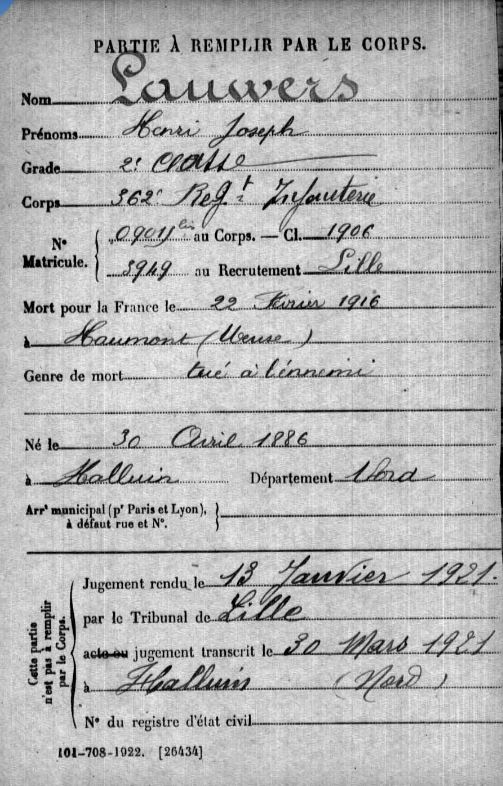 PARTIE À REMPLIR PAR LE CORPS.
Nom Lauwers
Prénoms Henri Joseph
Grade 2e classe
Corps 362e Regt Infanterie
N° Matricule. 09011bis au Corps. — Cl. 1906
5949 au Recrutement Lille
Mort pour la France le 22 Février 1916
à Haumont (Meuse)
Genre de mort tué à l'énnemi
Né le 30 Avril 1886
à Halluin Département Nord
Arrt municipal (pr Paris et Lyon), à défaut rue et N°.
Cette partie n'est pas à remplir par le Corps.
Jugement rendu le 13 Janvier 1921.
par le Tribunal de Lille
acte ou jugement transcrit le 30 Mars 1921
à Halluin (Nord)
N° du registre d'état civil
101-708-1922. [26434]